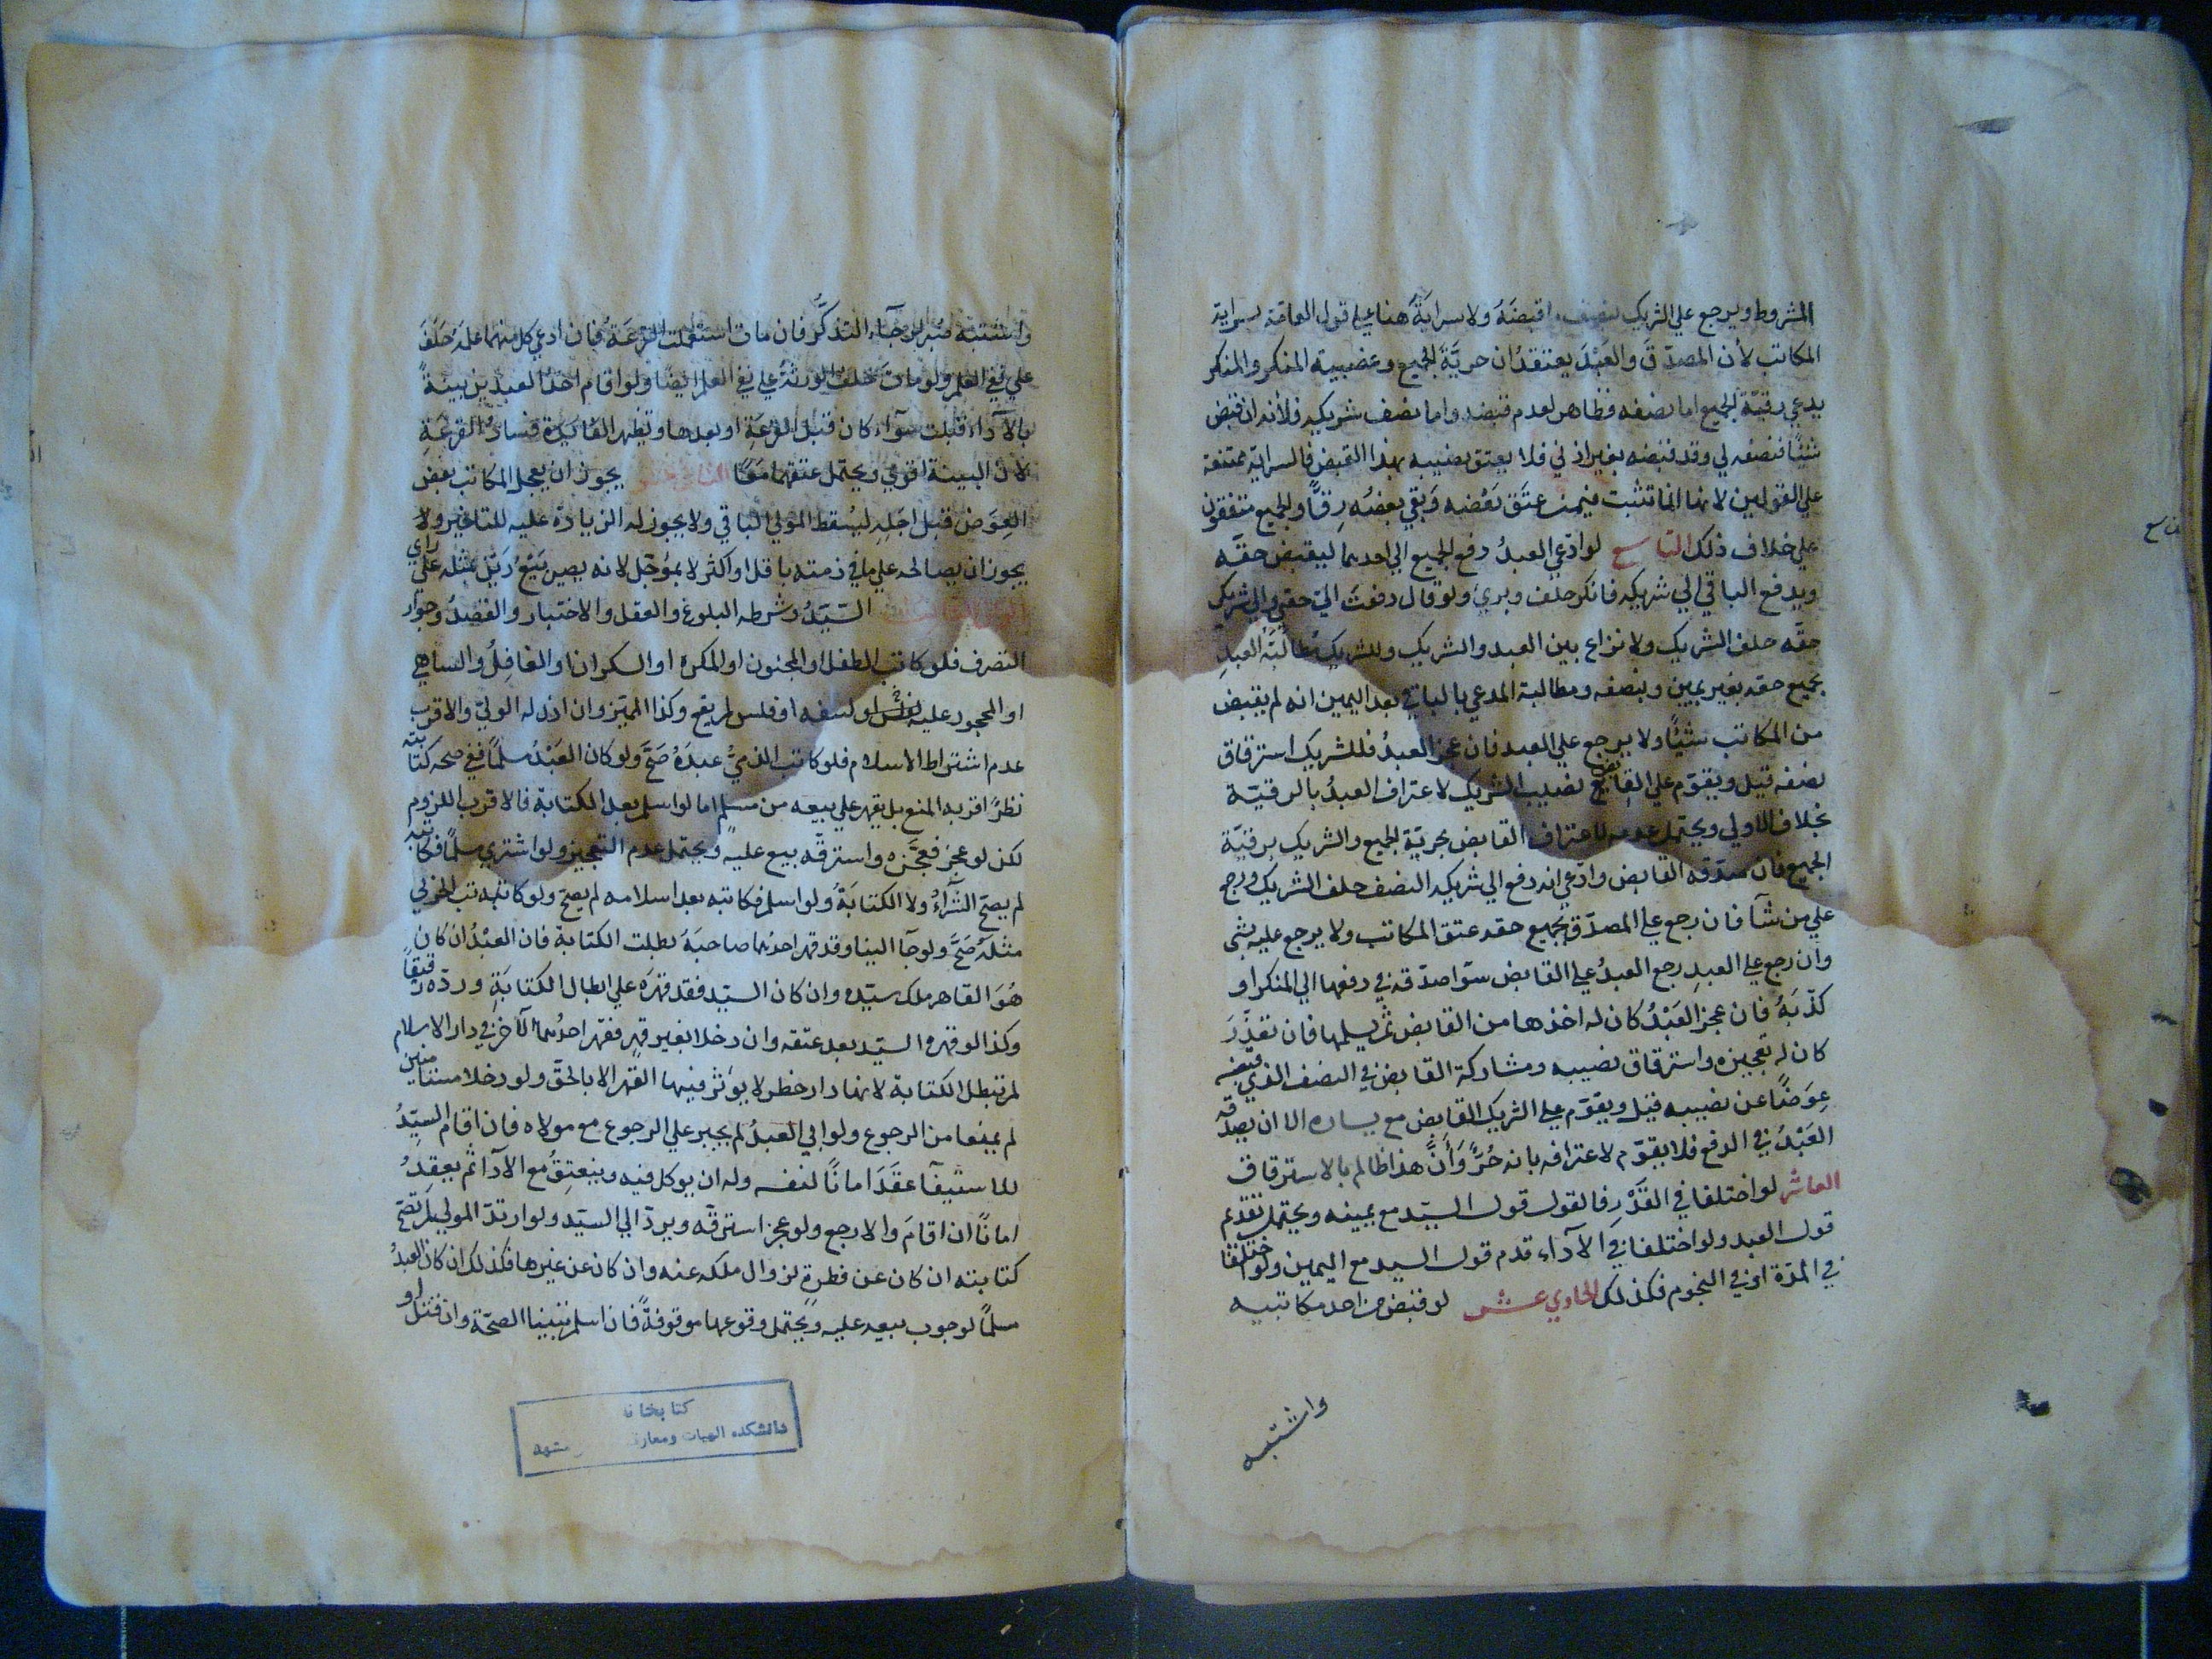 المشروط ويرجع علي الشريك بنصف ما قبضه ولا سراية هنا علي قول العامة بسراية
المكاتب لأن المصدق والعبد يعتقدان حرية الجميع وغصبية المنكر والمنكر
يدعي رقية الجميع اما نصفه فظاهر لعدم قبضه واما نصف شريكه فلأنه ان قبض
شيئا فنصفه لي وقد قبضه بغير اذني فلا يعتق نصيبه بهذا القبض فالسراية ممتنعة
علي القولين لانها انما تثبت فيمن عتق بعضه وبقي بعضه رقا والجميع متفقون
علي خلاف ذلك التاسع لو ادعي العبد دفع الجميع الي احدهما ليقبض حقه
ويدفع الباقي الي شريكه فانكر حلف وبرئ ولو قال دفعت الي حقي والي شريكي
حقه حلف الشريك ولا نزاع بين العبد والشريك وللشريك مطالبة العبد
بجميع حقه بغير يمين وبنصفه ومطالبة المدعي بالباقي بعد اليمين انه لم يقبض
من المكاتب شيئا ولا يرجع علي العبد فان عجز العبد فللشريك استرقاق
نصفه قيل ويقوم علي القابض نصيب الشريك لاعتراف العبد بالرقية
بخلاف الاولي ويحتمل عدمه لاعتراف القابض بحرية الجميع والشريك برقية
الجميع فان صدقه القابض وادعي انه دفع الي شريكه النصف حلف الشريك ورجع
علي من شآ فان رجع علي المصدق بجميع حقه عتق المكاتب ولا يرجع عليه بشئ
وان رجع علي العبد رجع العبد علي القابض سوا صدقه في دفعها الي المنكر او
كذبه فان عجز العبد كان له اخذها من القابض ثم يسلمها فان تعذر
كان له تعجيزه واسترقاق نصيبه ومشاركة القابض في النصف الذي قبضه
عوضا عن نصيبه قيل ويقوم علي الشريك القابض مع يساره الا ان يصدقه
العبد في الدفع فلا يقوم لاعترافه بانه حر وأن هذا ظالم بالاسترقاق
العاشر لو اختلفا في القدر فالقول قول السيد مع يمينه ويحتمل تقديم
قول العبد ولو اختلفا في الآداء قدم قول السيد مع اليمين ولو اختلفا
في المدة او في النجوم فكذلك الحادي عشر لو قبض من احد مكاتبيه
واشتبه
واشتبه صبر لرجآء التذكر فان مات استعملت القرعة فان ادعي كل منهما علمه حلف
علي نفي العلم ولو مات حلف الورثة علي نفي العلم ايضا ولو اقام احد العبدين بينة
بالآداء قبلت سوآء كان قبل القرعة او بعدها ويظهر الفايدة فساد القرعة
لان البينة اقوي ويحتمل عتقهما معا الثاني عشر يجوز ان يعجل المكاتب بعض
العوض قبل اجله ليسقط المولي الباقي ولا يجوز له الزيادة عليه للتاخير ولا
يجوز ان يصالحه علي ما في ذمته باقل او اكثر لا بمؤجل لانه يصير بيع دين بمثله علي راي
السيد وشرطه البلوغ والعقل والاختيار والقصد وجواز
التصرف فلو كاتب الطفل او المجنون او المكره او السكران او الغافل والساهي
او المحجور عليه لفلس او لسفه او فلس لم يقع وكذا المميز وان اذن له الولي والاقرب
عدم اشتراط الاسلام فلو كاتب الذمي عبده صح ولو كان العبد مسلما ففي صحه كتابته
نظر اقربه المنع بل يقهر علي بيعه من مسلم اما لو اسلم بعد الكتابة فالاقرب اللزوم
لكن لو عجز فعجزه واسترقه بيع عليه ويحتمل عدم التعجيز ولو اشتري مسلما فكاتبه
لم يصح الشرآء ولا الكتابة ولو اسلم فكاتبه بعد اسلامه لم يصح ولو كاتب الحربي
مثله صح ولو جآا الينا وقد قهر احدهما صاحبه بطلت الكتابة فان العبد ان كان
هو القاهر ملك سيده وان كان السيد فقد قهره علي ابطال الكتابة ورده رقيقا
وكذا لو قهره السيد بعد عتقه وان دخلا بغير قهر فقهر احدهما الآخر في دار الاسلام
لم تبطل الكتابة لانها دار حظر لا يوثر فيها القهر الا بالحق ولو دخلا مستامنين
لم يمنعا من الرجوع ولو ابي العبد لم يجبر علي الرجوع مع مولاه فان اقام السيد
للاستيفآ عقد امانا لنفسه وله ان يوكل فيه وينعتق مع الآدآ ثم يعقد
امانا ان اقام والا رجع ولو عجز استرقه ويرد الي السيد ولو ارتد المولي لم تصح
كتابته ان كان عن فطرة لزوال ملكه عنه وان كان عن غيرها فكذلك ان كان العبد
مسلما لوجوب بيعه عليه ويحتمل وقوعها موقوفة فان اسلم تبينا الصحة وان قتل او
كتابخانه
دانشكده الهيات ومعارف مشهد